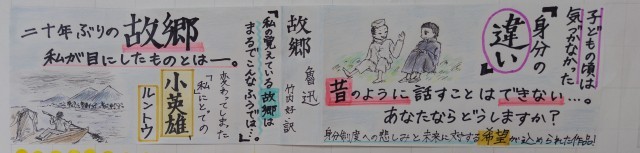 子どもの頃は
気づかなかった
『身分の
違い』…。
昔のように話すことはできない…。
あなたならどうしますか?
身分制度への悲しみと未来に対する希望が込められた作品!
故郷
魯迅
竹内好・訳
『私の覚えている故郷は
まるでこんなふうでは…。
変わってしまった
「私」にとっての
小英雄
ルントウ
二十年ぶりの故郷
私が目にしたものとは―。